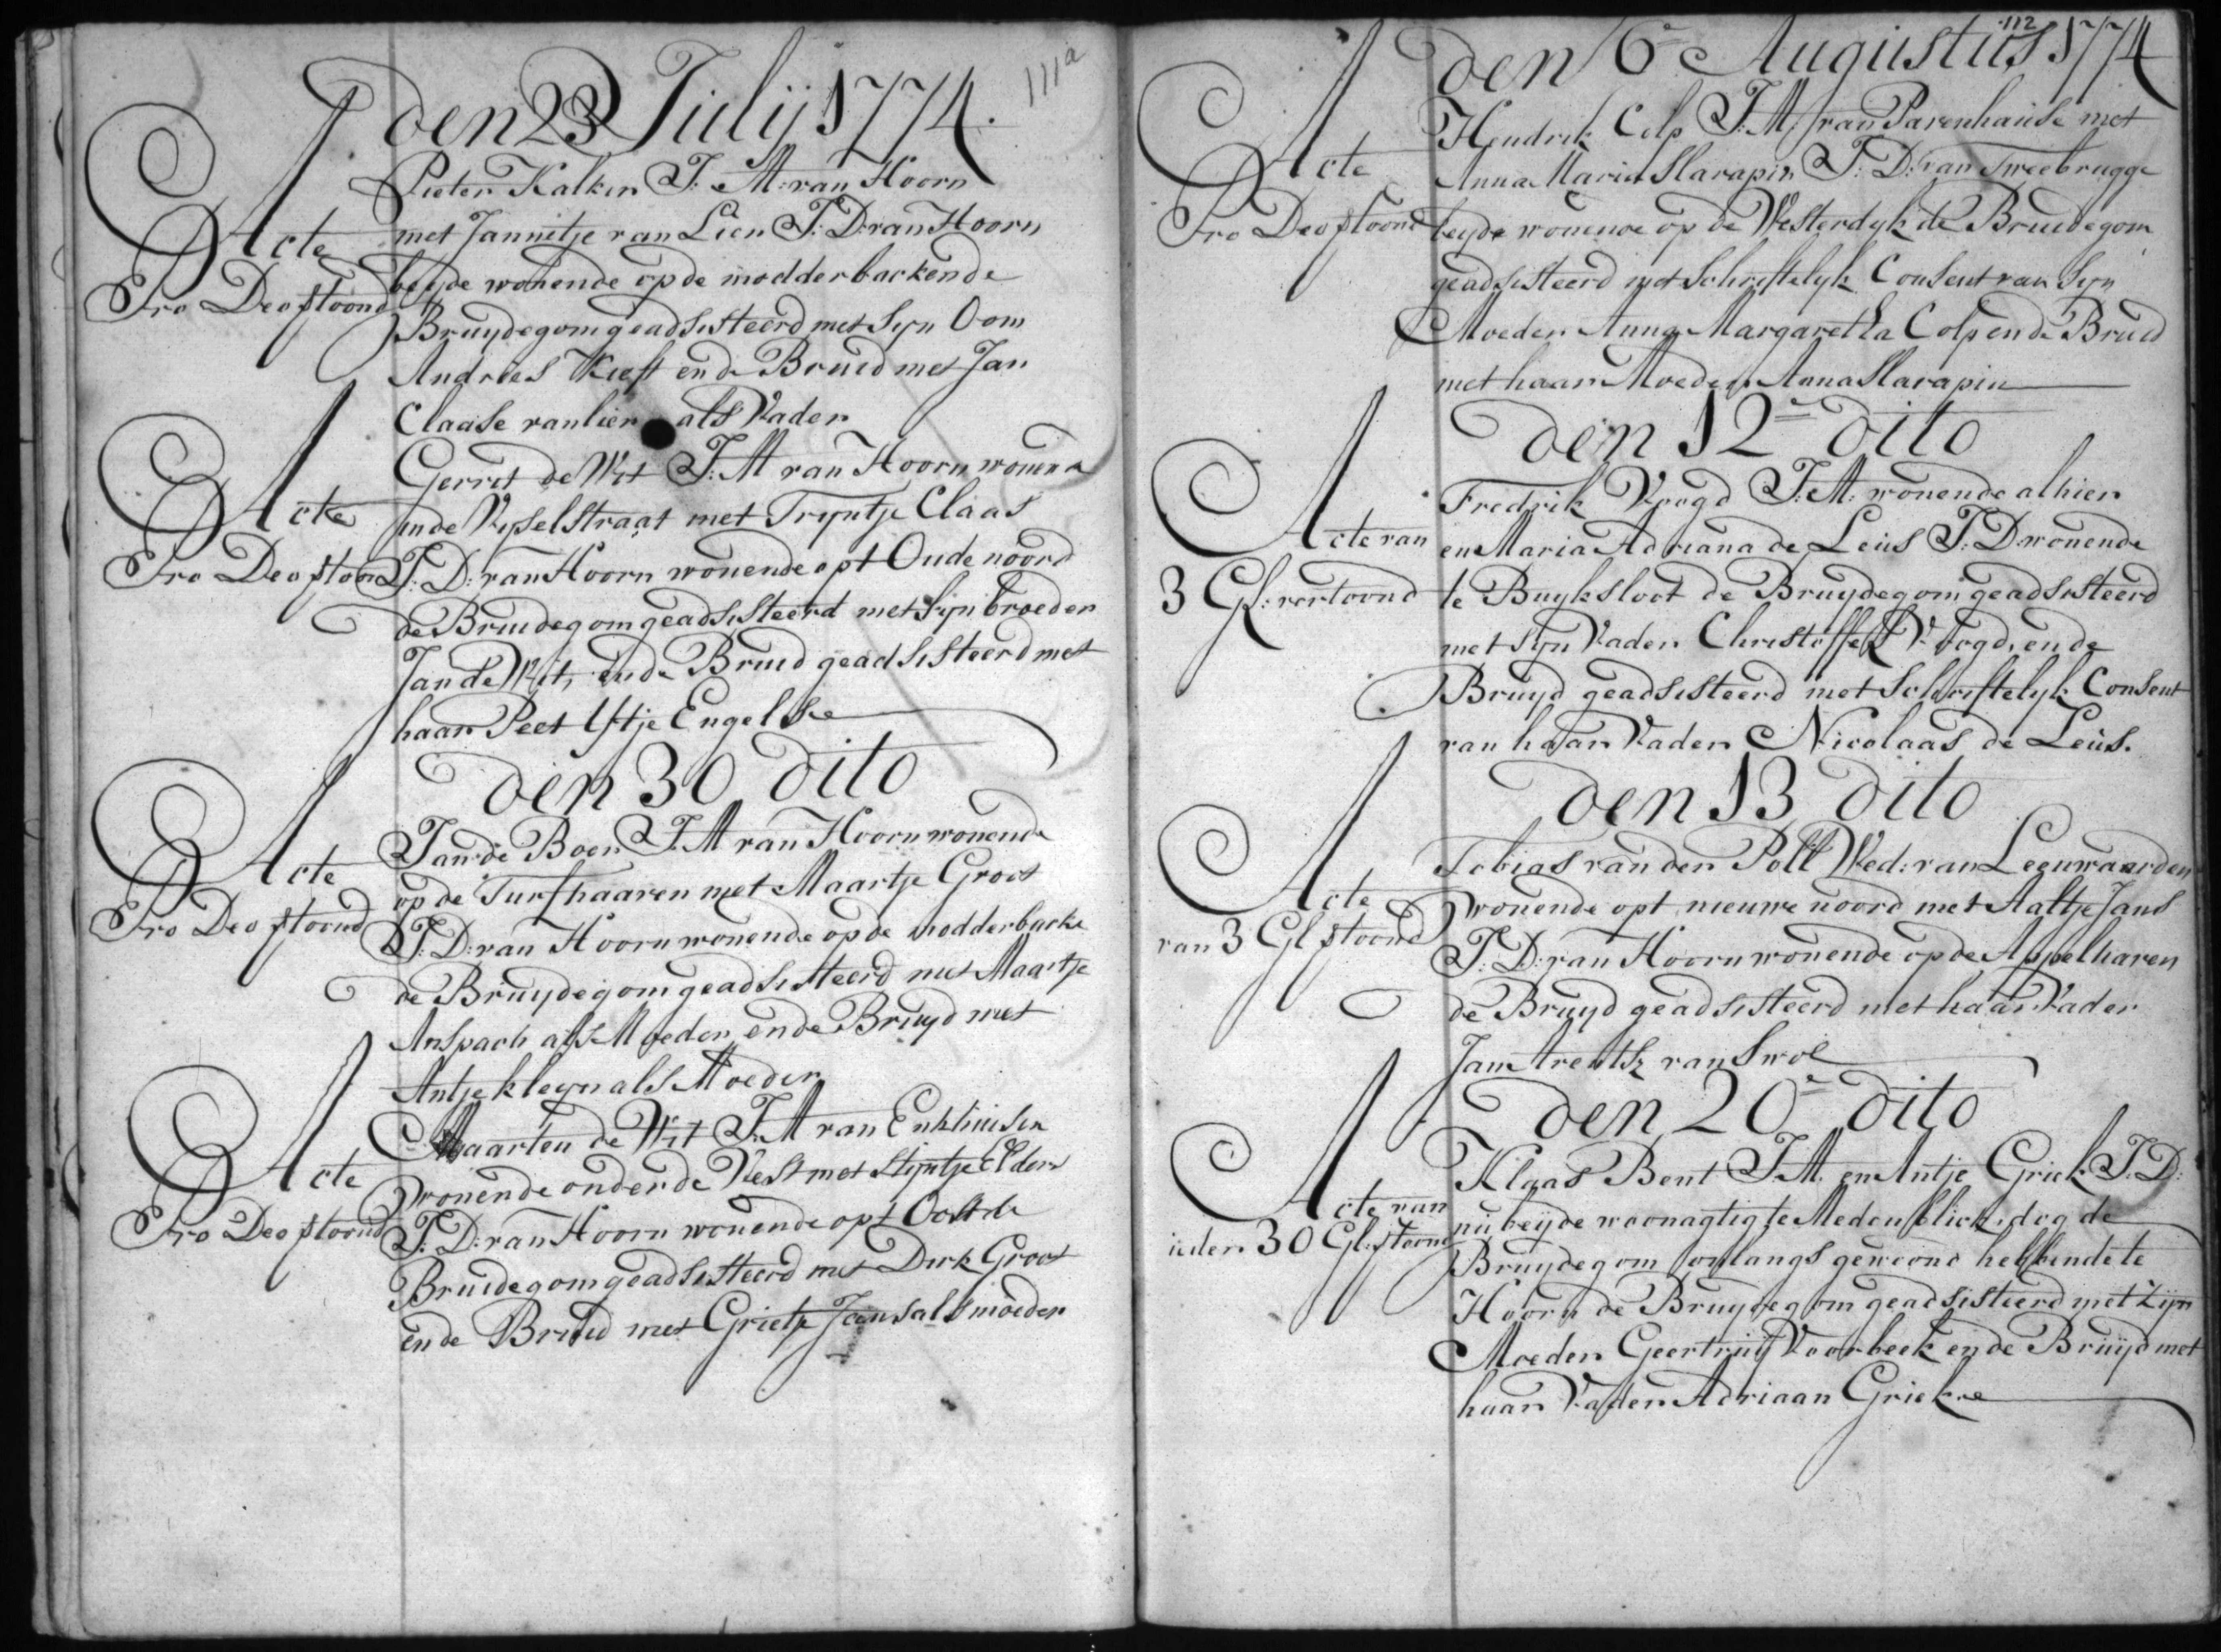 111a
den 23 Julij 1774.
Pieter Kalker J: M: van Hoorn
met Jannetje van Lien J: D: van Hoorn
Acte
beyde wonende op de modderbacken de
Pro Deo ftoond
Bruydegom geadsisteerd met Syn Oom
Andries Kieft en de Bruid met Jan
Claase van lier als Vader
Gerrit de Wit J: M van Hoorn wonend
Acte
in de Wyselstraat met Tryntje Claas
Pro Deo ftoon
J: D: van Hoorn wonende opt Oude noord
de Bruidegom geadsisteerd met Sijn broeder
Jan de Wit, en de Bruid geadsisteerd met
haar Peet Eftje Engelse
den 30 dito
Jan de Boer J: M van Hoorn wonende
Acte
op de Turfhaaven met Maartje Groot
Pro Deo ftoond
J: D: van Hoorn wonende op de modderbacke
de Bruydegom geadsisteerd met Maartje
Anspach als Moeder en de Bruyd met
Antje kleyn als Moeder
Maarten de Wit J: M van Enkhuisen
Acte
wonende onder de Vest met Stijntje Elders
Pro Deo ftoond
J: D: van Hoorn wonende opt Oost de
Bruidegom geadsisteerd met Dirk Groot
en de Bruid met Grietje Jans als moeder
112
den 6e Augustus 1774
Hendrik Colp J: M: van Parenhause met
Acte
Anna Maria Slarapin J: D: van Tweebrugge
Pro Deo ftoond
beyde wonende op de Westerdyk de Bruidegom
geadsisteerd met Schriftelyk Consent van Syn
Moeder Anna Margaretha Colp en de Bruid
met haar Moeder Anna Slarapin
den 12e dito
Fredrik Voogd J: M: wonende alhier
Acte van
en Maria Adriana de Leüs J: D wonende
3 Gl: vertoond
te Buyksloot de Bruydegom geadsisteerd
met Syn Vader Christoffel Voogd, en de
Bruyd geadsisteerd met Schriftelyk Consent
van haar Vader Nicolaas de Leüs.
den 13 dito
Tobias van der Poll Wed: van Leeuwaarden
Acte
wonende opt nieuwe noord met Aaltje Jans
van 3 Gl ftoond
J: D: van Hoorn wonende op de Appelhaven
de Bruyd geadsisteerd met haar Vader
Jan Arentsz van Swol
den 20e dito
Klaas Bent J: M. en Antje Griek J: D:
Acte van
nu beijde woonagtig te Medenblick, dog de
ieder 30 Gl: ftoond
Bruydegom onlangs gewoond hebbende te
Hoorn de Bruydegom geadsisteerd met Zijn
Moeder Geertruij Voorbeek en de Bruijd met
haar Vader Adriaan Griek